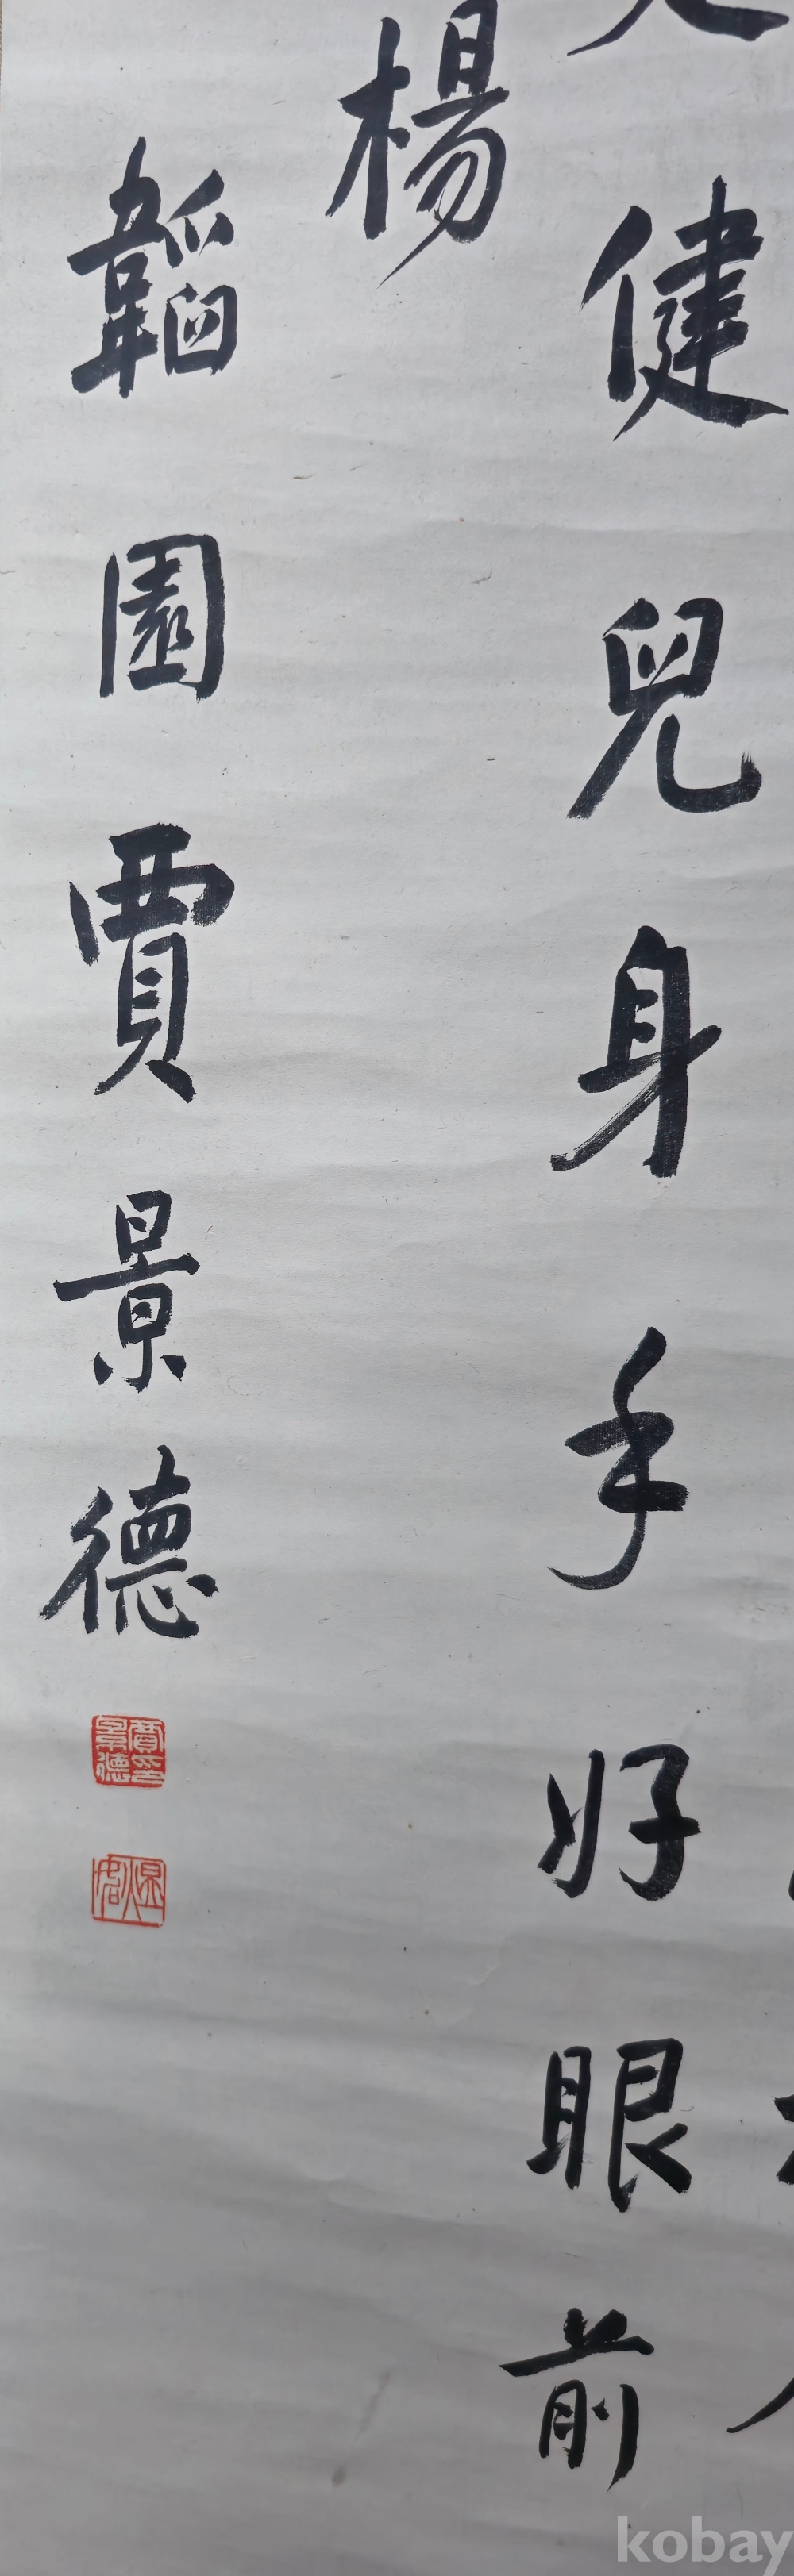 健兒身手好眼前
楊
韜園賈景德
賈景德印
煜如
kobay